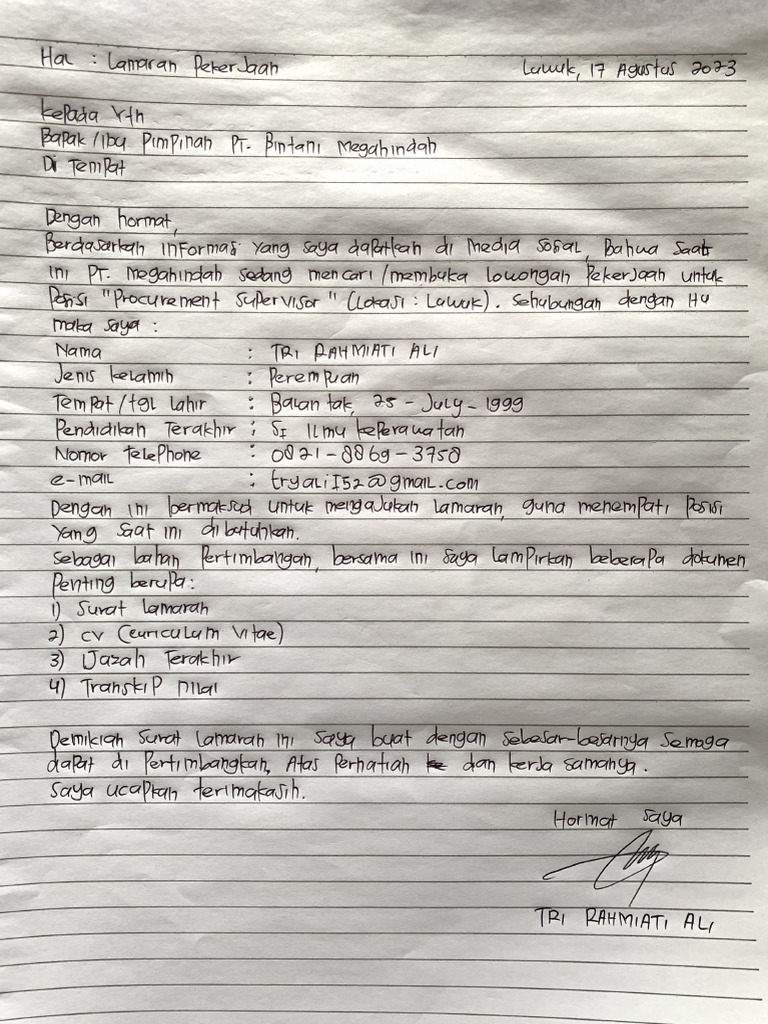 Hal : Lamaran Pekerjaan
Luwuk, 17 Agustus 2023
Kepada Yth
Bapak /ibu Pimpinan PT. Bintani Megahindah
Di Tempat
Dengan hormat,
Berdasarkan informasi yang saya dapatkan di Media Sosial, Bahwa Saat
ini PT. Megahindah sedang mencari/membuka lowongan Pekerjaan untuk
Posisi "Procurement Supervisor" (Lokasi : Luwuk). Sehubungan dengan
maka saya :
Nama : TRI RAHMIATI ALI
Jenis kelamin : Perempuan
Tempat/tgl lahir : Balantak, 25 - July - 1999
Pendidikan Terakhir : S1 Ilmu keperawatan
Nomor telephone : 0821-8869-3758
e-mail : tryali152@gmail.com
Dengan ini bermaksud untuk mengajukan lamaran, guna menempati Posisi
Yang saat ini dibutuhkan.
Sebagai bahan Pertimbangan, bersama ini saya lampirkan beberapa dokumen
Penting berupa:
1) Surat lamaran
2) CV (curiculum vitae)
3) Ijazah Terakhir
4) Transkip nilai
Demikian Surat lamaran ini saya buat dengan sebesar-besarnya Semoga
dapat di Pertimbangkan, Atas Perhatian dan kerja samanya.
Saya ucapkan terimakasih.
Hormat saya
TRI RAHMIATI ALI